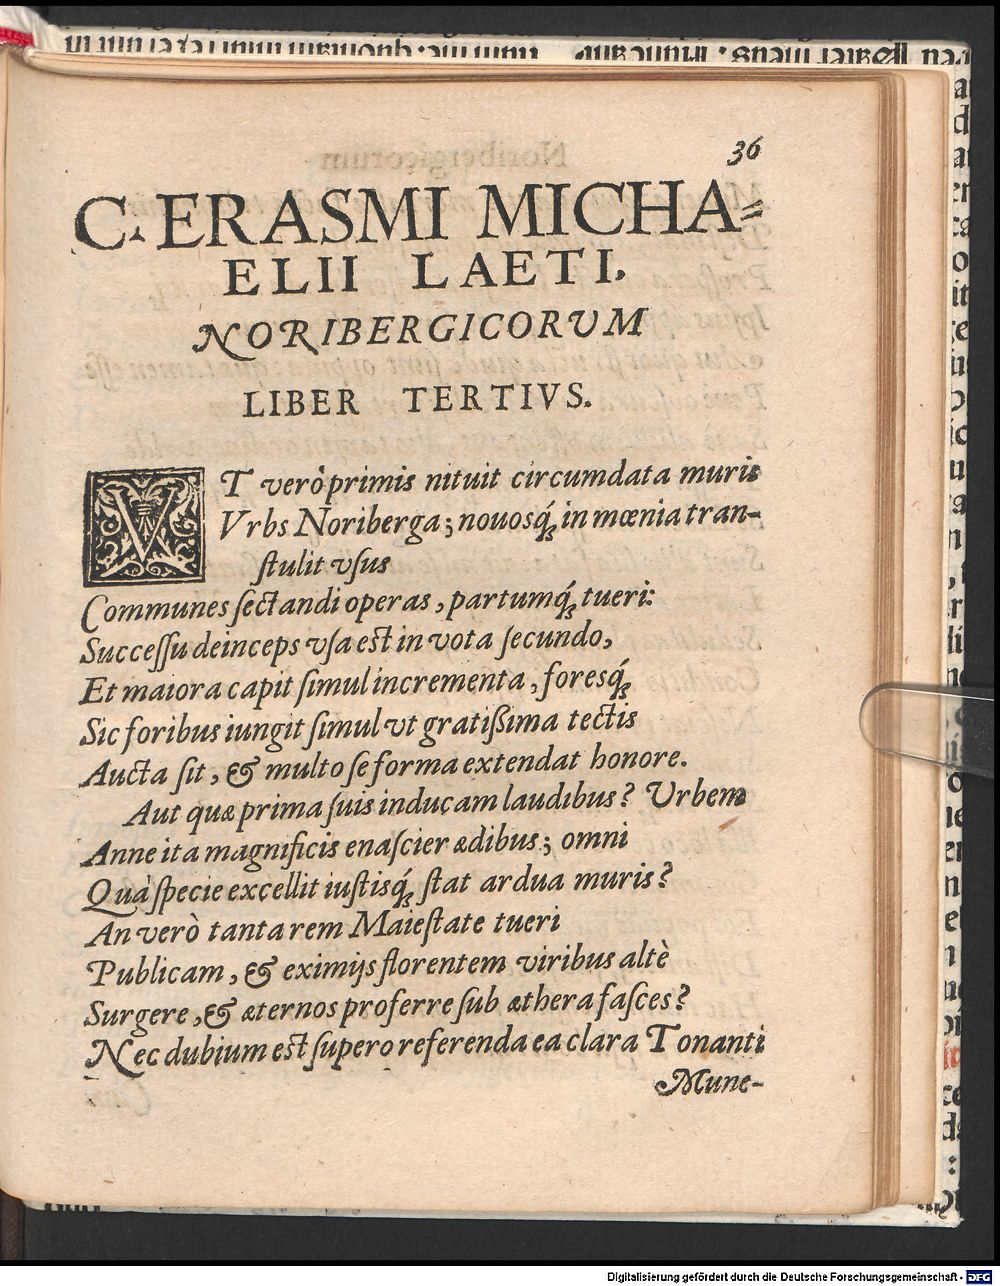 36
C. ERASMI MICHA-
ELII LAETI,
NORIBERGICORVM
LIBER TERTIVS.
VT verò primis nituit circumdata muris
Vrbs Noriberga; nouosq́; in mœnia tran-
ſtulit vſus
Communes ſectandi operas, partumq́; tueri:
Succeſſu deinceps vſa est in vota ſecundo,
Et maiora capit ſimul incrementa, foresq́;
Sic foribus iungit ſimul vt gratißima tectis
Aucta ſit, & multo ſe forma extendat honore.
Aut quæ prima ſuis inducam laudibus? Urbem
Anne ita magnificis enaſcier ædibus; omni
Quà ſpecie excellit iustisq́; stat ardua muris?
An verò tanta rem Maiestate tueri
Publicam, & eximijs florentem viribus altè
Surgere, & æternos proferre ſub æthera faſces?
Nec dubium est ſupero referenda ea clara Tonanti
Mune-
Digitalisierung gefördert durch die Deutsche Forschungsgemeinschaft - DFG